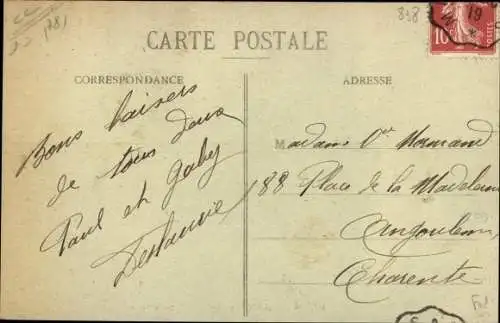 838
10
19
CARTE POSTALE
CORRESPONDANCE
ADRESSE
Bons baisers
de tous deux
Paul et Gaby
Madame Vve Normand
188 Place de la Madeleine
Angoulême
Charente